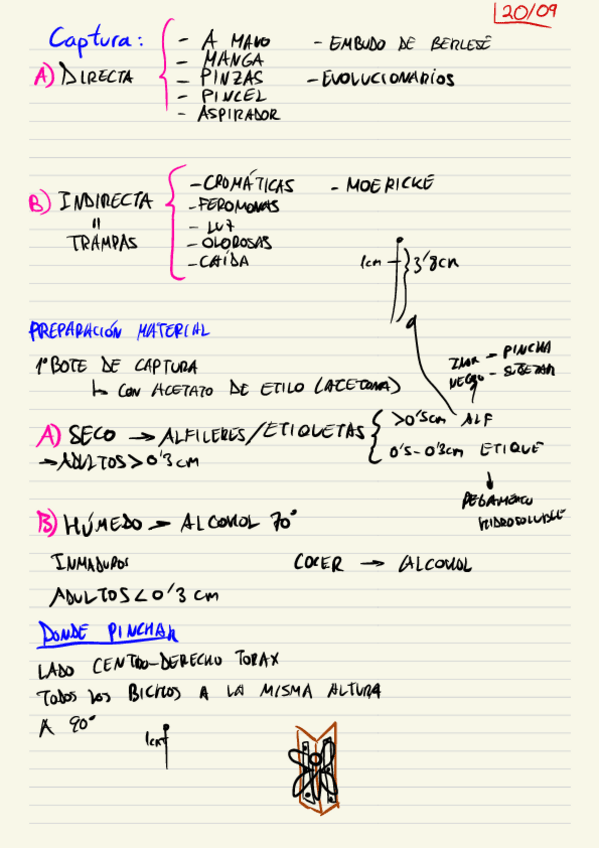 20/09
Captura:
A) DIRECTA
- A MANO
- MANGA
- PINZAS
- PINCEL
- ASPIRADOR
- EMBUDO DE BERLESE
- EVOLUCIONARIOS
B) INDIRECTA
=
TRAMPAS
- CROMÁTICAS
- FEROMONAS
- LUZ
- OLOROSAS
- CAÍDA
- MOERICKE
1cm
3'8cm
PREPARACIÓN MATERIAL
1º BOTE DE CAPTURA
↳ CON ACETATO DE ETILO (ACETONA)
→ PINCHA
NEGRO →
A) SECO → ALFILERES/ETIQUETAS
>0'5cm ALF
0'5-0'3cm ETIQUE
→ ADULTOS > 0'3 cm
PEGAMENTO
HIDROSOLUBLE
B) HÚMEDO → ALCOHOL 70º
INMADUROS
COCER → ALCOHOL
ADULTOS < 0'3 cm
DONDE PINCHAR
LADO CENTRO-DERECHO TORAX
TODOS LOS BICHOS A LA MISMA ALTURA
A 90º
1cm